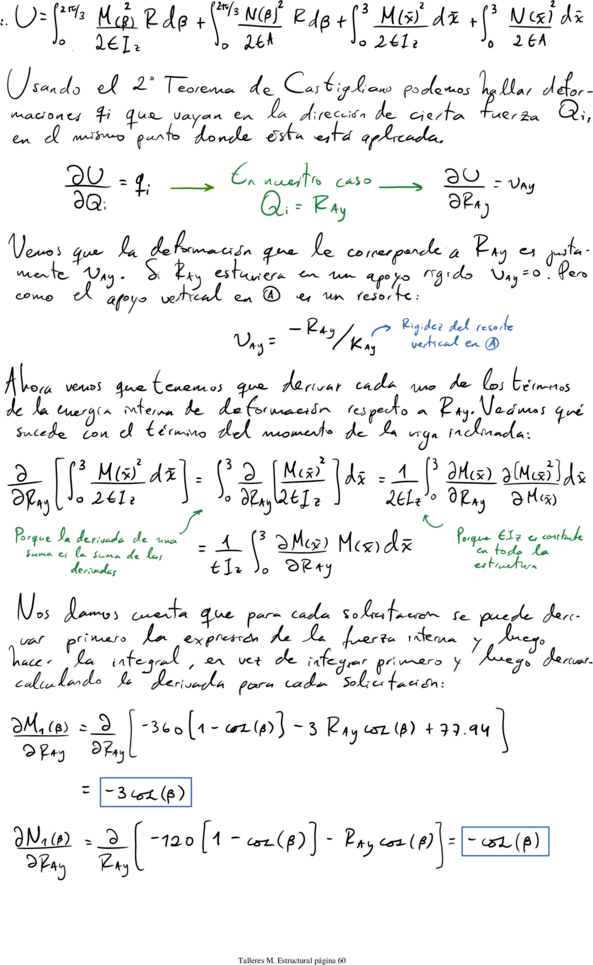 ∴ U = ∫₀^{2π/3} M(β)²/2EIz R dβ + ∫₀^{2π/3} N(β)²/2EA R dβ + ∫₀³ M(x̄)²/2EIz dx̄ + ∫₀³ N(x̄)²/2EA dx̄
Usando el 2° Teorema de Castigliano podemos hallar defor-
maciones qi que vayan en la dirección de cierta fuerza Qi,
en el mismo punto donde ésta está aplicada.
∂U/∂Qi = qi → En nuestro caso Qi = RAy → ∂U/∂RAy = vAy
Vemos que la deformación que le corresponde a RAy es justa-
mente vAy. Si RAy estuviera en un apoyo rígido vAy=0. Pero
como el apoyo vertical en Ⓐ es un resorte:
vAy = -RAy/KAy → Rigidez del resorte vertical en Ⓐ
Ahora vemos que tenemos que derivar cada uno de los términos
de la energía interna de deformación respecto a RAy. Veamos qué
sucede con el término del momento de la viga inclinada:
∂/∂RAy [∫₀³ M(x̄)²/2EIz dx̄] = ∫₀³ ∂/∂RAy [M(x̄)²/2EIz] dx̄ = 1/2EIz ∫₀³ ∂M(x̄)/∂RAy ∂[M(x̄)²]/∂M(x̄) dx̄
Porque la derivada de una
suma es la suma de las
derivadas
= 1/EIz ∫₀³ ∂M(x̄)/∂RAy M(x̄) dx̄
Porque EIz es constante
en toda la
estructura
Nos damos cuenta que para cada solicitación se puede deri-
var primero la expresión de la fuerza interna y luego
hacer la integral, en vez de integrar primero y luego derivar.
calculando la derivada para cada solicitación:
∂M₁(β)/∂RAy = ∂/∂RAy [-360[1-cos(β)] - 3 RAy cos(β) + 77.94]
= -3cos(β)
∂N₁(β)/∂RAy = ∂/RAy [-120[1-cos(β)] - RAy cos(β)] = -cos(β)
Talleres M. Estructural página 60